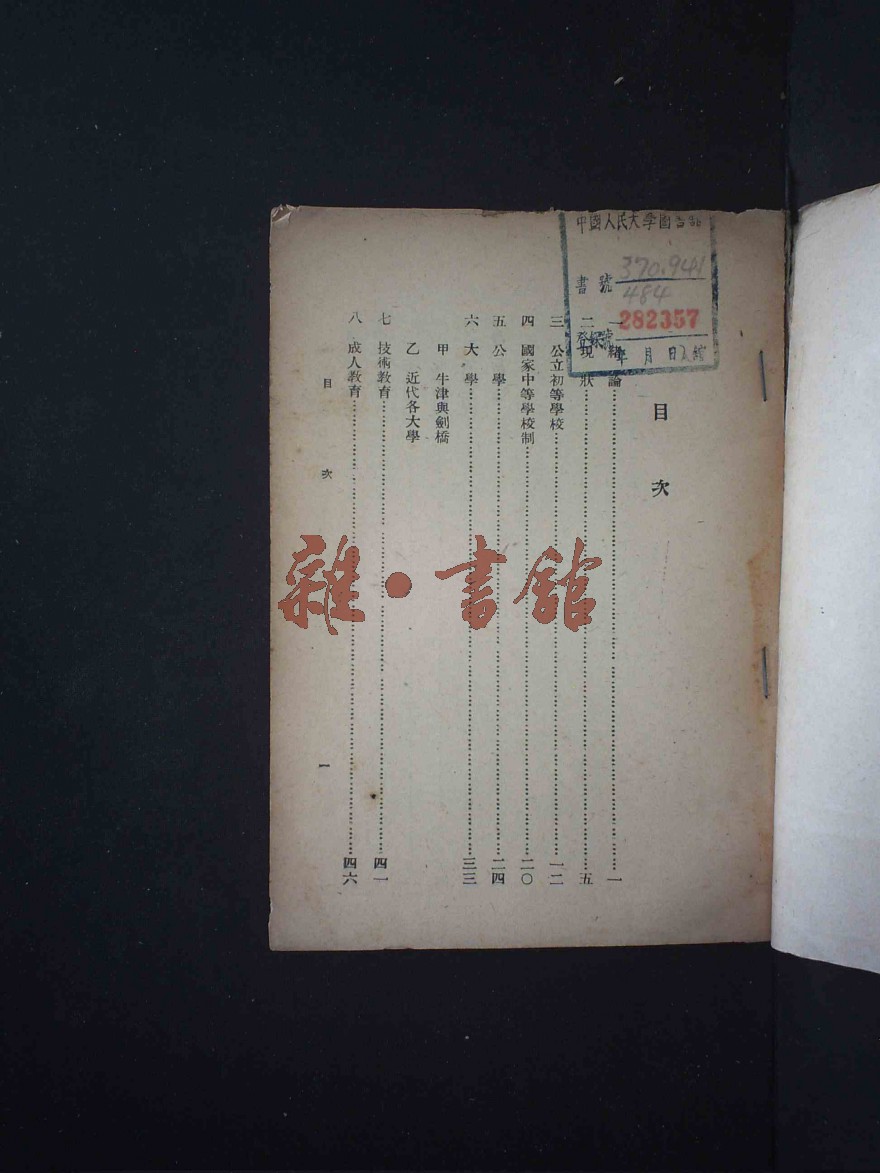 中國人民大學圖書館
書號 370.941
484
登錄號 282357
年 月 日入館
目次
一 緒論……一
二 現狀……五
三 公立初等學校……一二
四 國家中等學校制……二〇
五 公學……二四
六 大學……三三
甲 牛津與劍橋
乙 近代各大學
七 技術教育……四一
八 成人教育……四六
目次 一
雜·書館